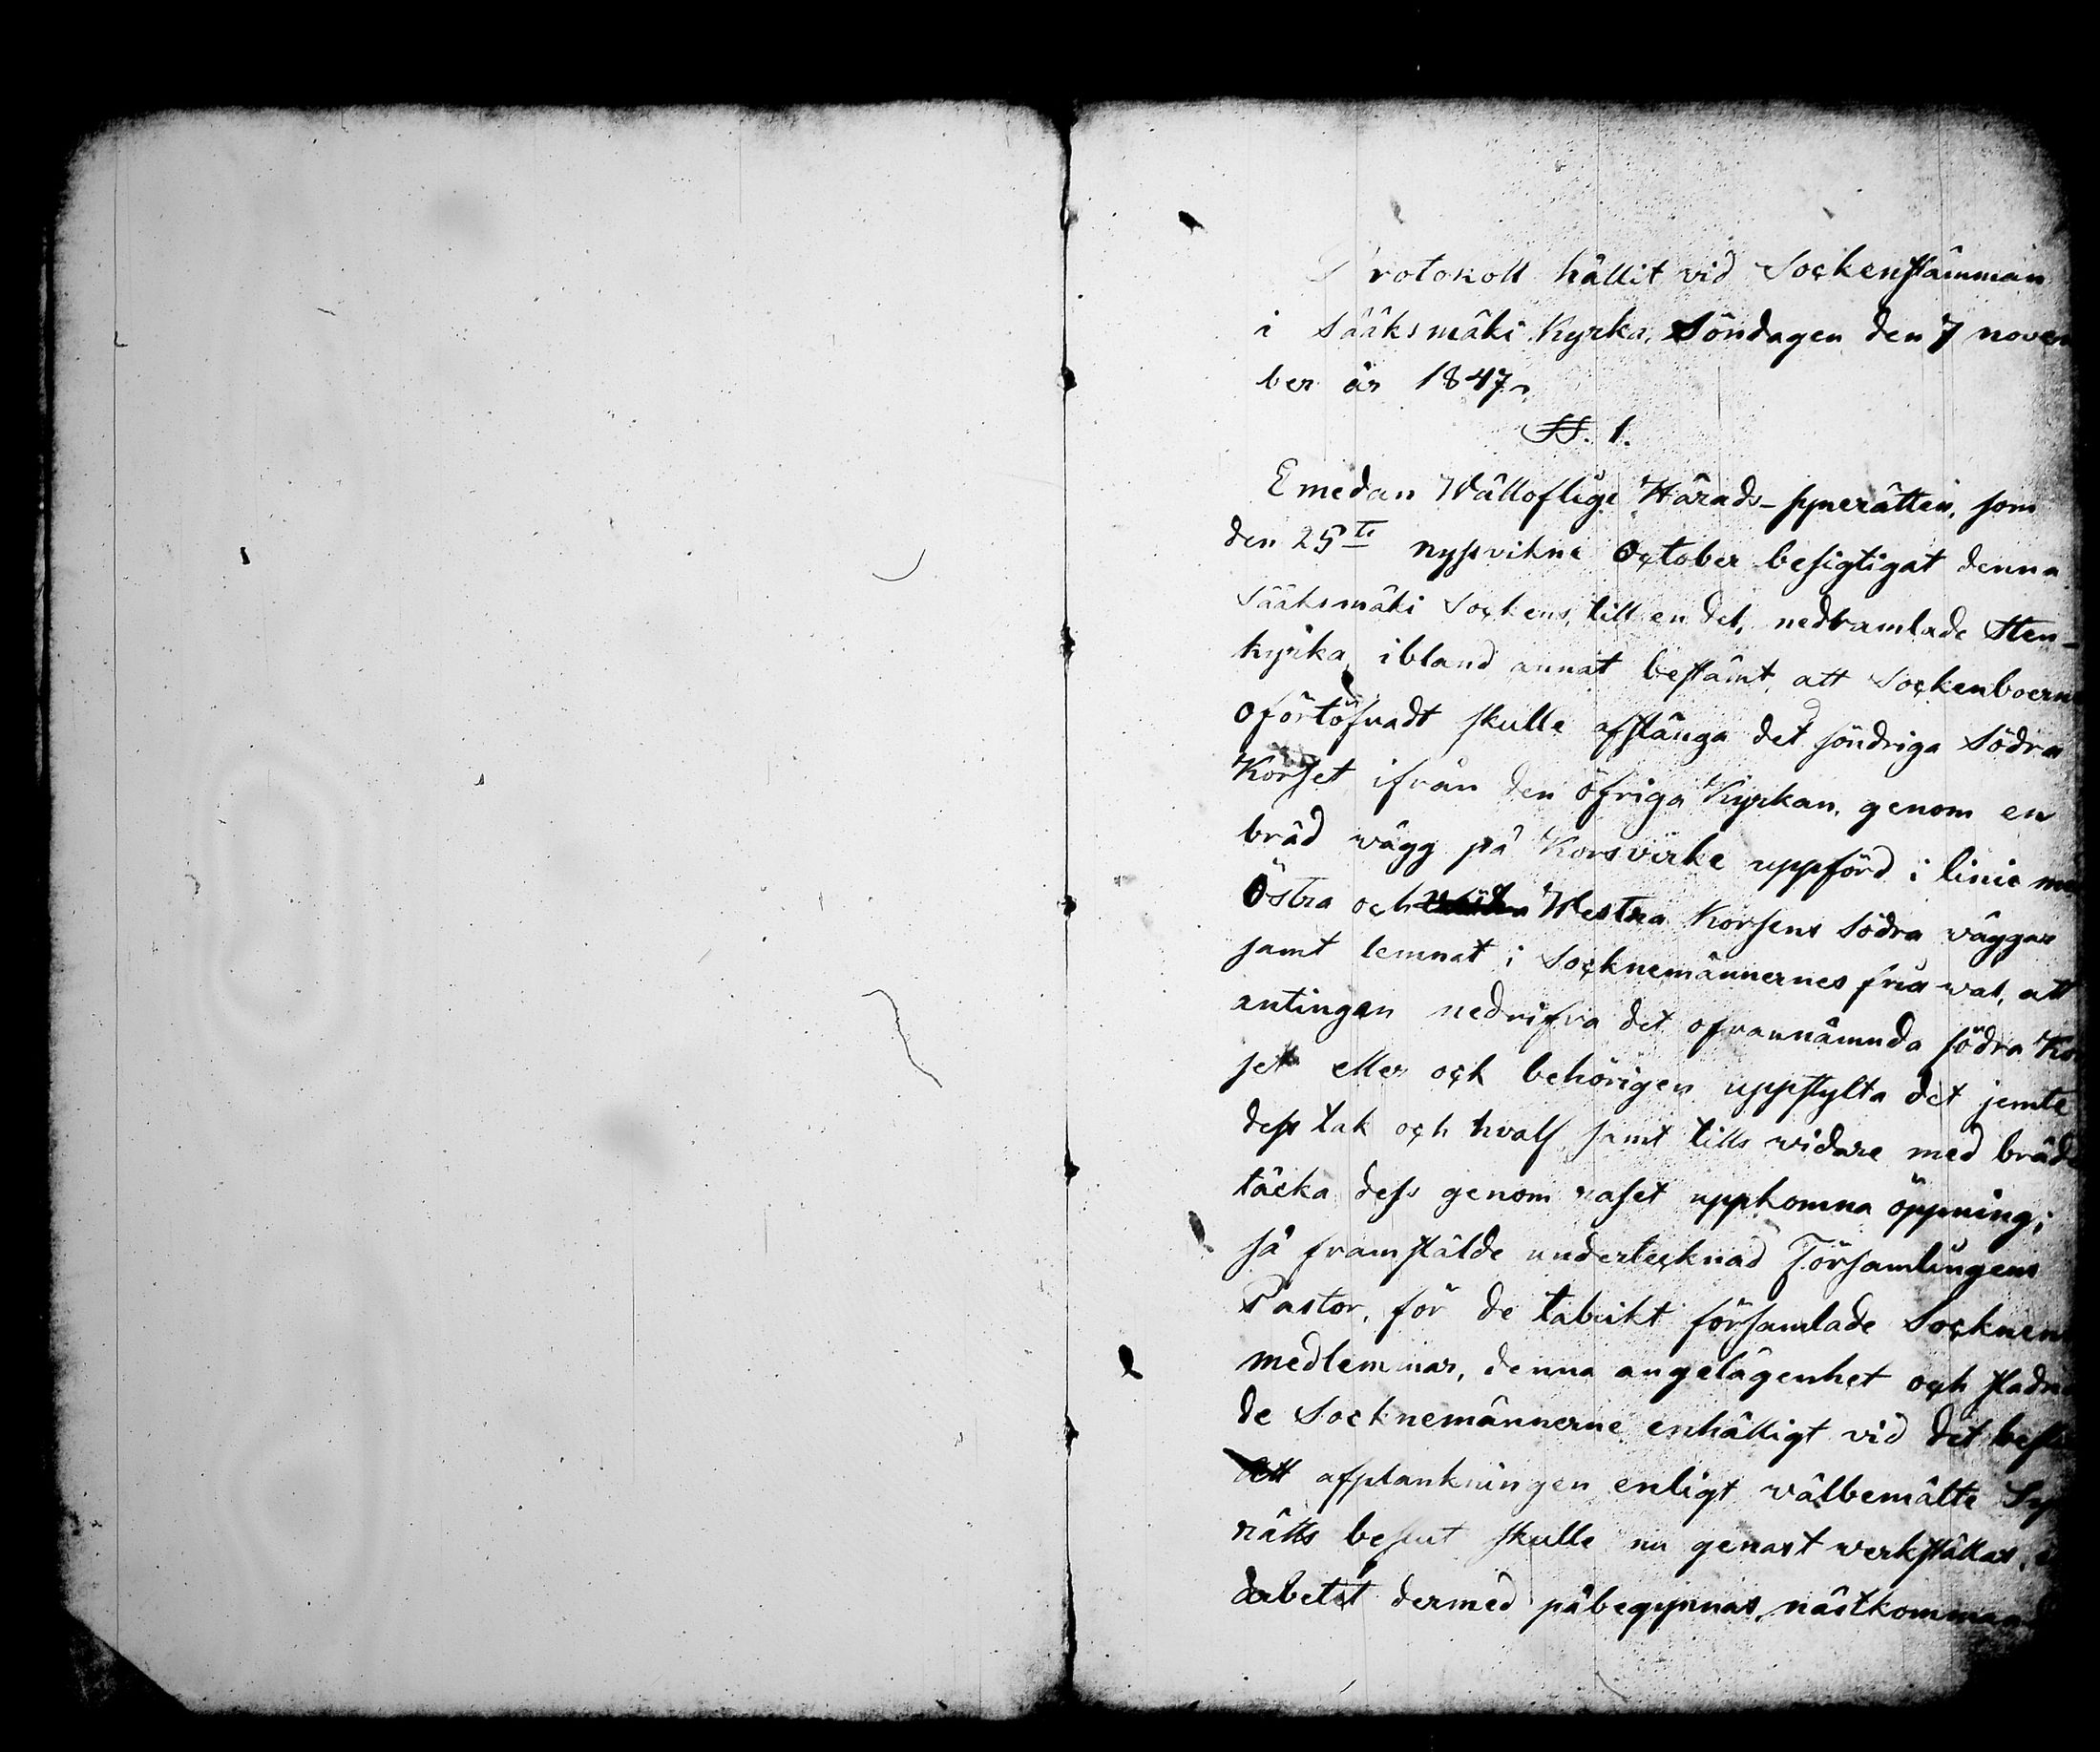 Protokoll hållit vid Sockenstämman
i Sääksmäki Kyrka, Söndagen den 7 novem
ber år 1847.
§§. 1.
Emedan Wälloflige Härads-synerätten, som
den 25te nyssvikne October besigtigat denna
Sääksmäki Sockens, till en del, nedramlade Sten-
kyrka, ibland annat bestämt, att Sockenboerne
oförtöfvadt skulle afstänga det söndriga Södra
Korset ifrån den öfriga Kyrkan, genom en
bräd vägg på Korsvirke uppförd i linie med
Östra och Westra Korsens Södra väggar
samt lemnat i Socknemännernes fria val, att
antingen nedrifva det ofvannämnda södra Kor
set eller och behörigen uppstylta det jemte
dess tak och hvalf samt tills vidare med bräde
täcka dess genom raset uppkomna öppning;
så framstälde undertecknad Församlingens
Pastor, för de talrikt församlade Socknens
medlemmar, denna angelägenhet och stadna
de Socknemännerne enhälligt vid det beslut
Att afplankningen enligt välbemälte Sy
rätts beslut skulle nu genast verkställas,
arbetet dermed påbegynnas, nästkommand